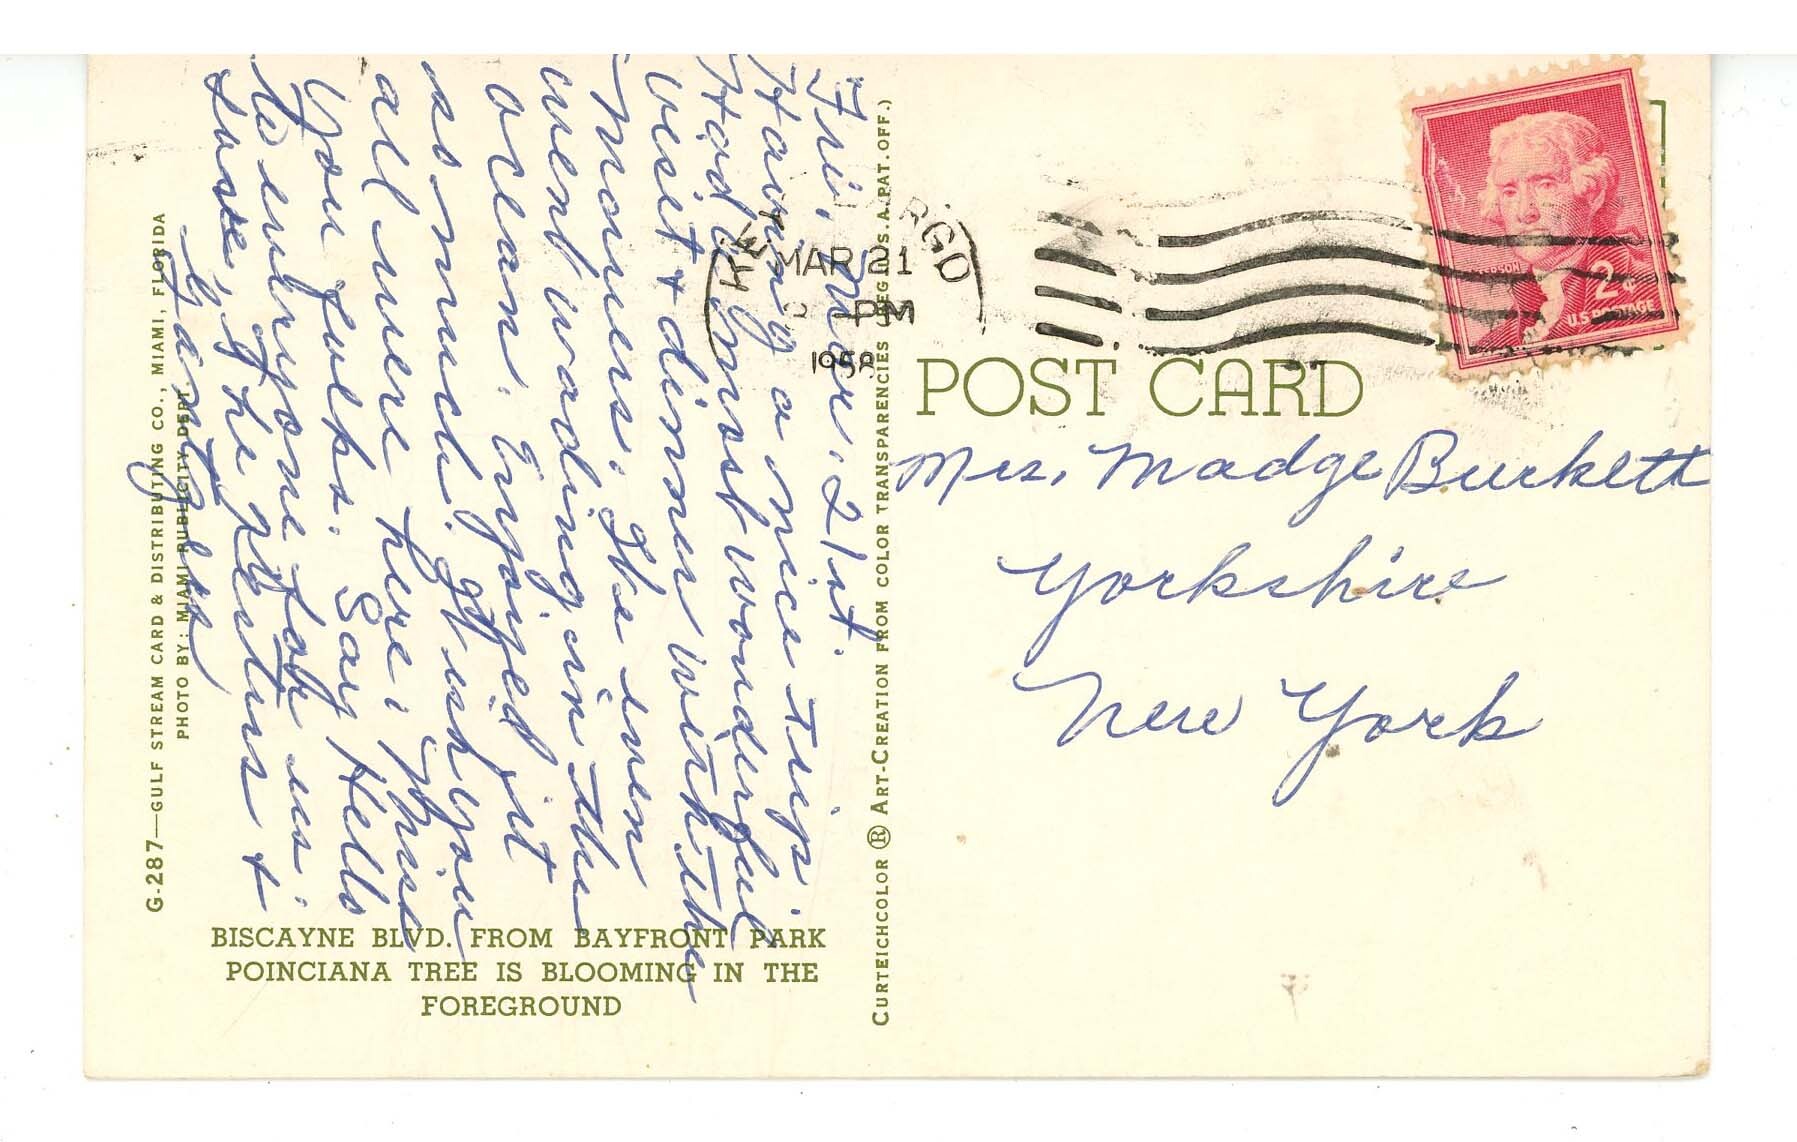 Fri. Mar. 21st.
Having a nice trip.
Had a most wonderful
visit & dinner with the
Moniers. We even
went wading in the
ocean. Enjoyed it
so much. Wish you
all were here. Miss
you folks. Say Hello
to everyone for us.
Love, The Peters &
KEY LARGO
MAR 21
PM
1958
2¢
U.S. POSTAGE
POST CARD
Mrs. Madge Burkett
Yorkshire
New York
G-287—GULF STREAM CARD & DISTRIBUTING CO., MIAMI, FLORIDA
PHOTO BY: MIAMI PUBLICITY DEPT.
BISCAYNE BLVD. FROM BAYFRONT PARK
POINCIANA TREE IS BLOOMING IN THE
FOREGROUND
CURTEICHCOLOR ® ART-CREATION FROM COLOR TRANSPARENCIES (REG. U.S.A. PAT. OFF.)